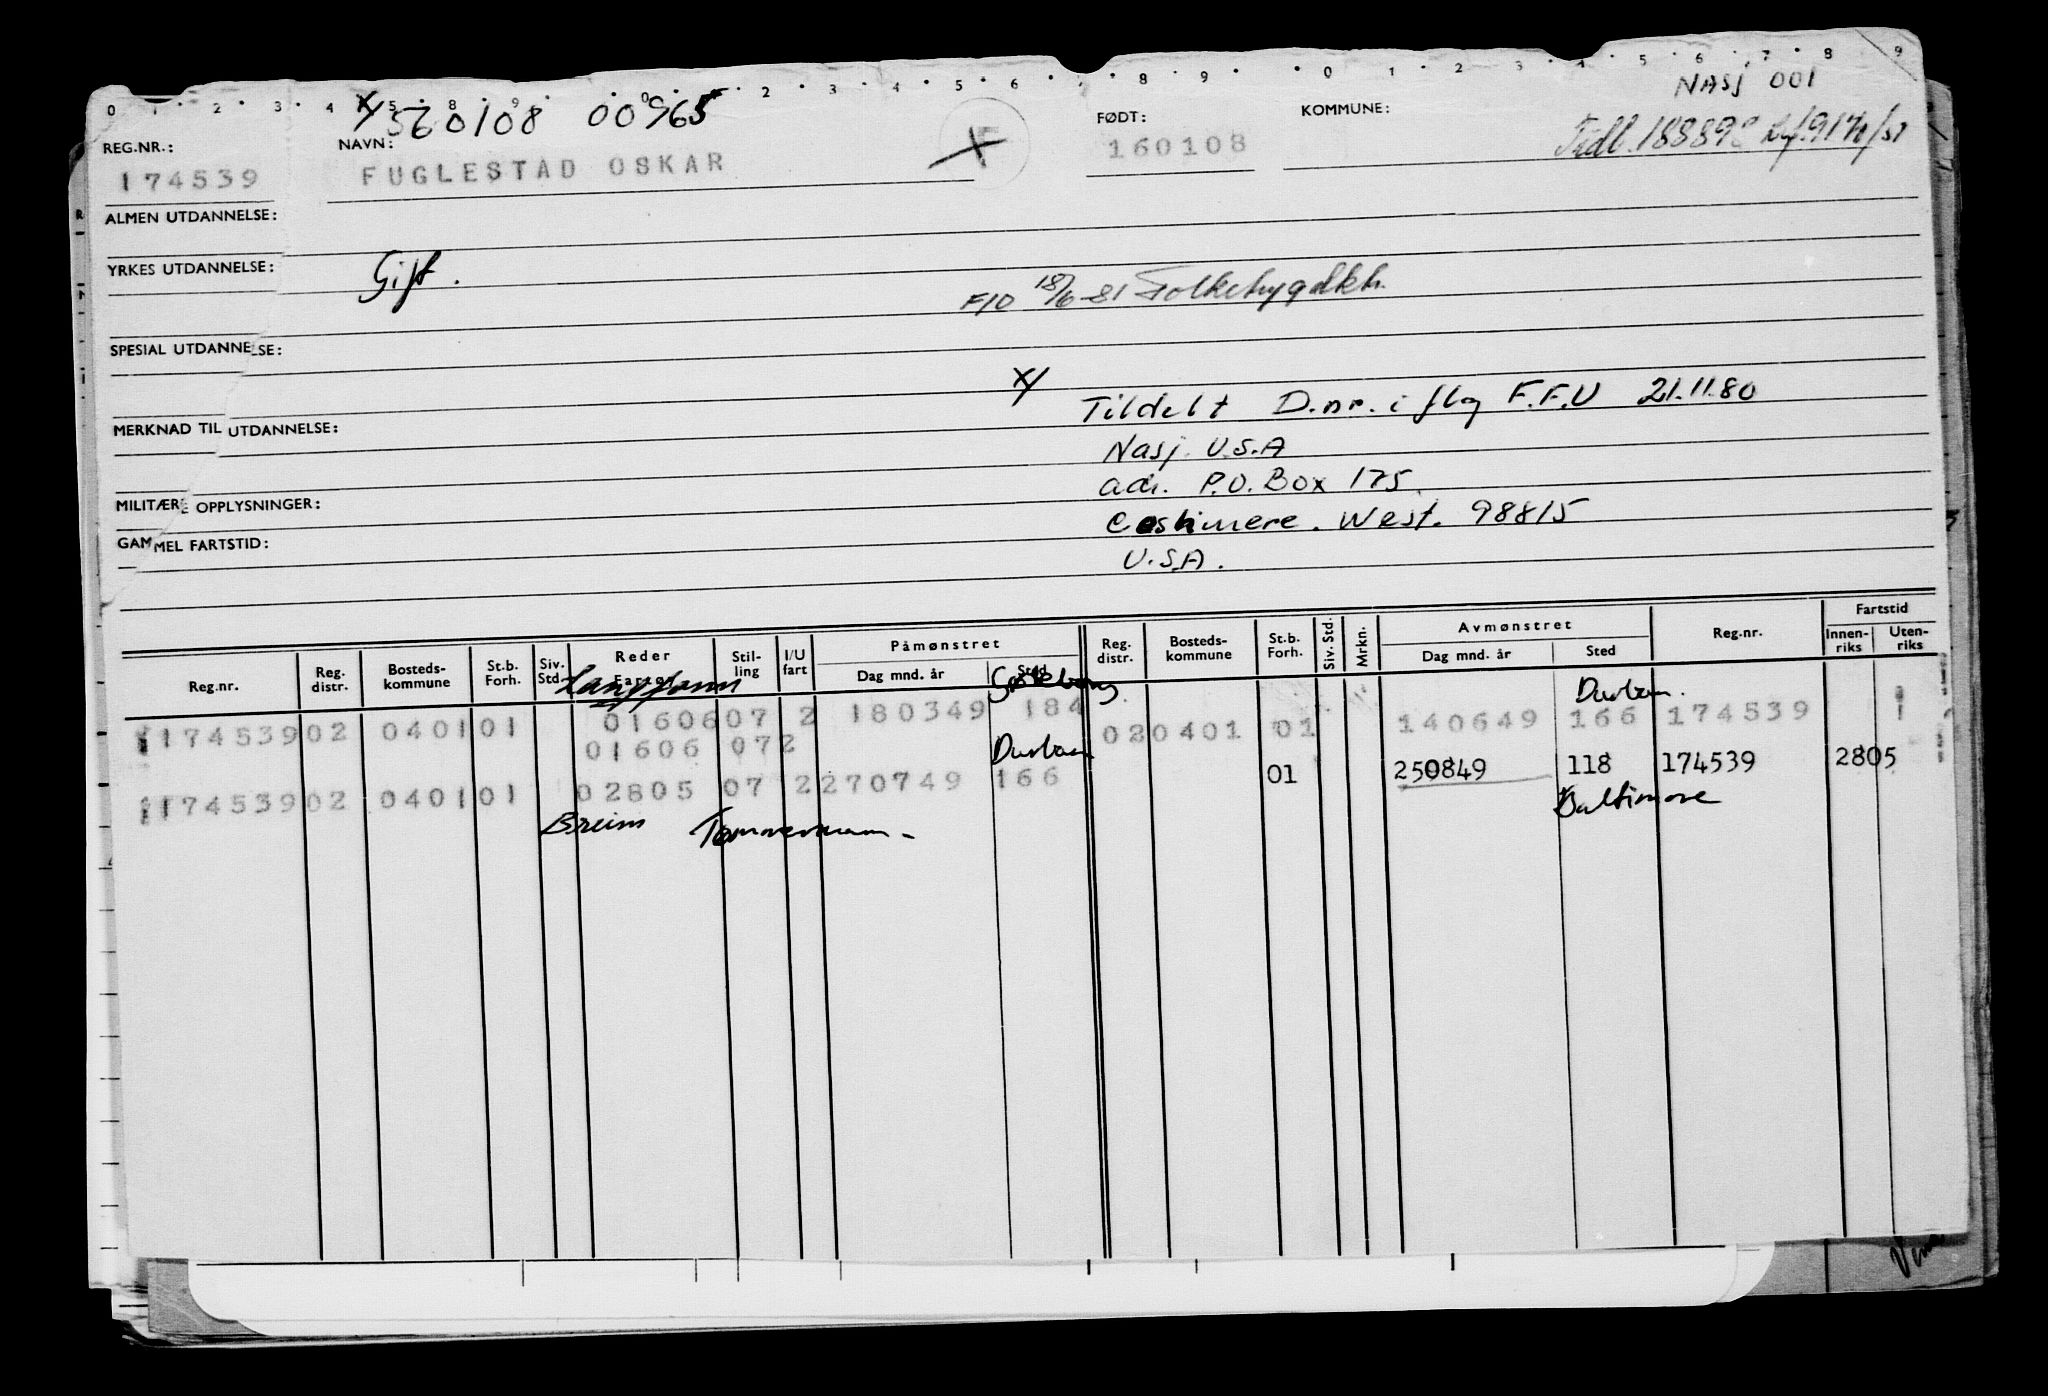 0 1 2 3 4 5 8 9 0 2 3 4 5 6 7 8 9 0 1 2 3 4 5 6 7 8 9
x/ 560108 00965
NASJ 001
REG.NR.: NAVN: FØDT: KOMMUNE:
174539 FUGLESTAD OSKAR 160108
ALMEN UTDANNELSE:
YRKES UTDANNELSE: Gift.
F10 18/6-81
SPESIAL UTDANNELSE:
x/ Tildelt D.nr. i flg F.F.U 21.11.80
MERKNAD TIL UTDANNELSE:
Nasj. U.S.A
adr. P.O. Box 175
MILITÆRE OPPLYSNINGER:
Cashmere. West. 98815
GAMMEL FARTSTID:
U.S.A.
Reg.nr. Reg. distr. Bosteds-kommune St.b. Forh. Siv. Std. Reder Fartøy Stil-ling I/U fart Påmønstret Dag mnd. år Sted Reg. distr. Bosteds-kommune St.b. Forh. Siv. Std. Mrkn. Avmønstret Dag mnd. år Sted Reg.nr. Fartstid Innen-riks Uten-riks
Durban.
1174539 02 0401 01 01606 07 2 180349 184 02 0401 01 140649 166 174539
01606 07 2 Durban
01 250849 118 174539 2805
1174539 02 0401 01 02805 07 2 270749 166
Baltimore
Breim Tømmermann